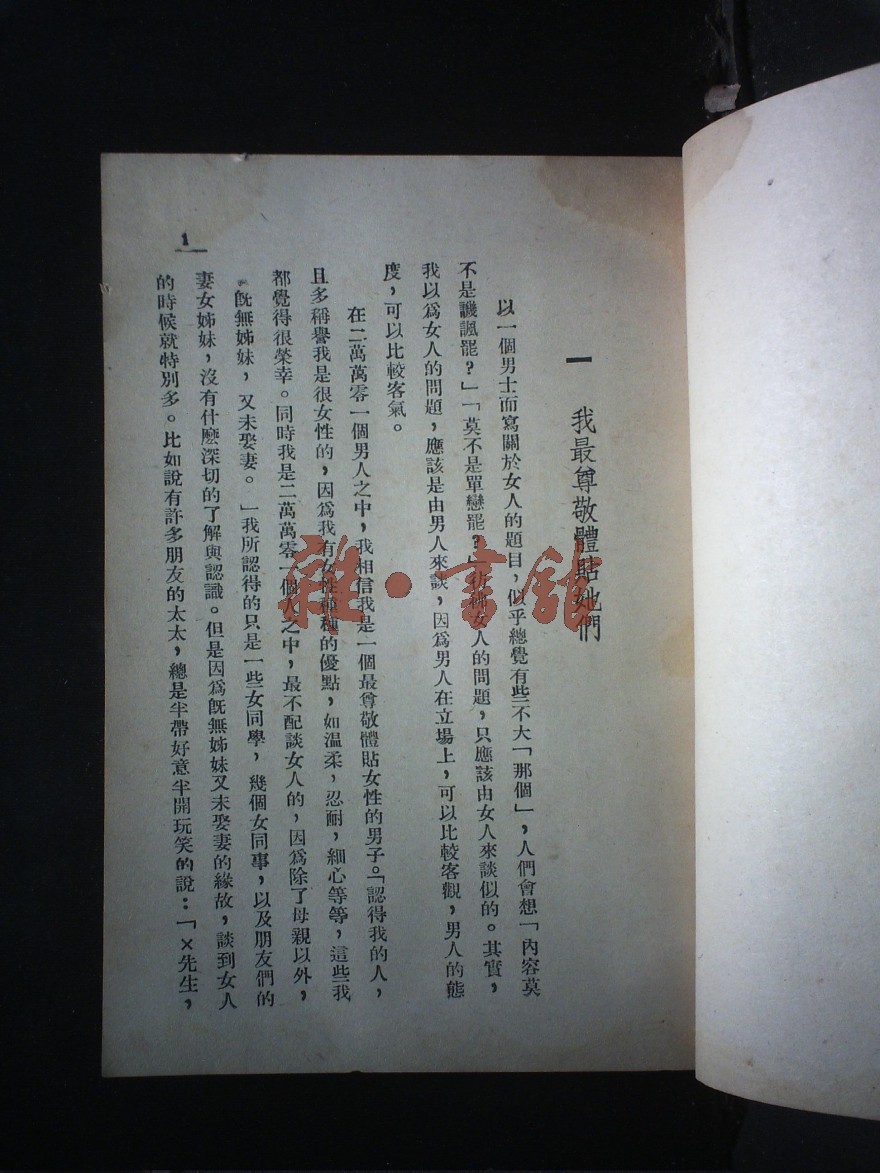 一　我最尊敬體貼她們
以一個男士而寫關於女人的題目，似乎總覺有些不大「那個」，人們會想「內容莫
不是譏諷罷？」「莫不是單戀罷？」彷彿女人的問題，只應該由女人來談似的。其實，
我以爲女人的問題，應該是由男人來談，因爲男人在立場上，可以比較客觀，男人的態
度，可以比較客氣。
在二萬萬零一個男人之中，我相信我是一個最尊敬體貼女性的男子。「認得我的人，
且多稱譽我是很女性的，因爲我有女性種種的優點，如温柔，忍耐，細心等等，這些我
都覺得很榮幸。同時我是二萬萬零一個人之中，最不配談女人的，因爲除了母親以外，
旣無姊妹，又未娶妻。」我所認得的只是一些女同學，幾個女同事，以及朋友們的
妻女姊妹，沒有什麽深切的了解與認識。但是因爲旣無姊妹又未娶妻的緣故，談到女人
的時候就特別多。比如說有許多朋友的太太，總是半帶好意半開玩笑的說：「×先生，
1
雜·書館